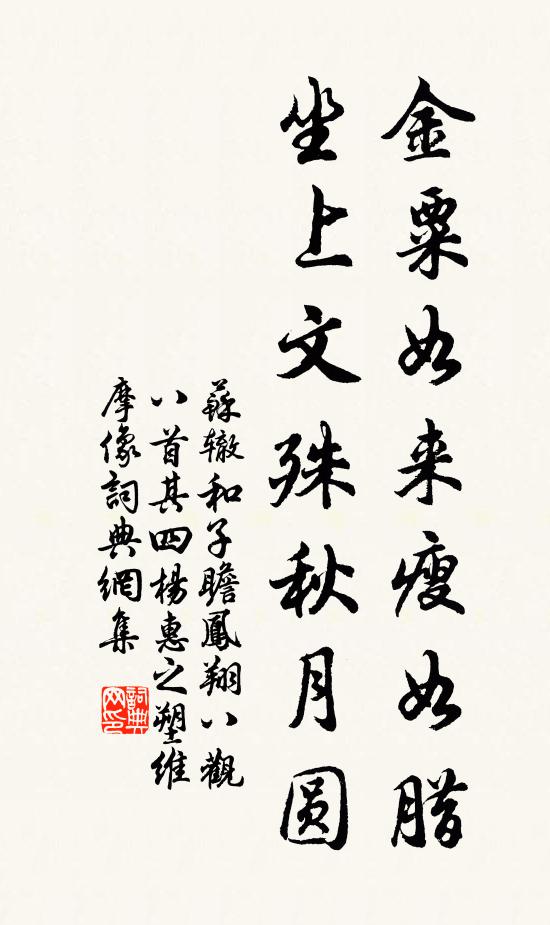 金粟如来瘦如腊
坐上文殊秋月圆
蘇辙和子瞻鳳翔八觀
八首其四楊惠之塑維
摩像詞典網集
詞典网印